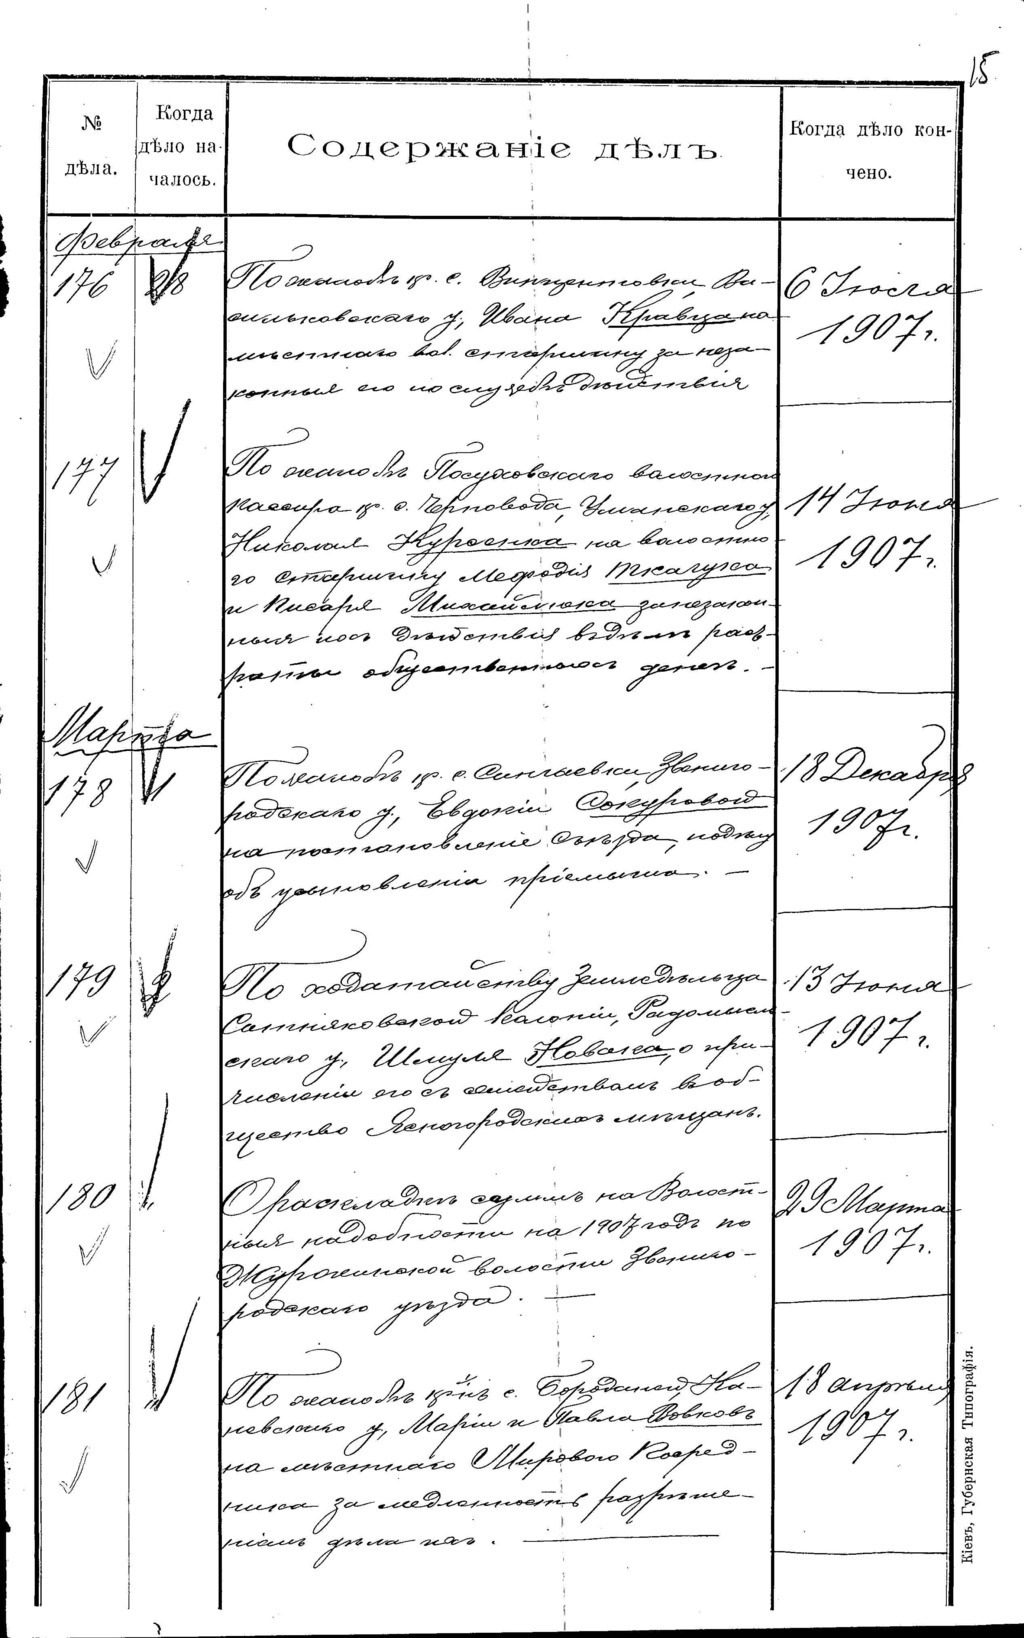 15
№ дѣла.
Когда дѣло началось.
Содержаніе дѣлъ.
Когда дѣло кончено.
Февраля
176
28
По жалобѣ кр. с. Винцентовки, Ва-
сильковскаго у., Ивана Кравца на
мѣстнаго вол. старшину за неза-
конныя его по службѣ дѣйствія
6 Іюля
1907 г.
177
По жалобѣ Посуховскаго волостного
кассира кр. с. Черповода, Уманскаго у.,
Николая на волостно
го Старшину Мефодія Ткачука
и Писаря Михайлюка за незакон-
ныя ихъ дѣйствія раст-
раты общественныхъ денег. —
14 Іюня
1907 г.
Марта
178
По жалобѣ кр. с. Звениго-
родскаго у., Евдокіи Сокуровой
на постановленіе Съѣзда,
объ усыновленіи пріемыша. —
18 Декабря
1907 г.
179
2
По ходатайству Земледѣльца
колоніи, Радомысл-
скаго у., Шмуля Новака, о при-
численіи его съ семействомъ въ об-
щество Ясногородскихъ мѣщанъ.
13 Іюня
1907 г.
180
О раскладкѣ суммъ на Волост-
ныя надобности на 1907 годъ по
волости Звениго-
родскаго уѣзда. —
29 Марта
1907 г.
181
По жалобѣ кр-нъ с. Бородани, Ка-
невскаго у., Маріи и Павла Вовковъ
на мѣстнаго Мирового Посред-
ника за медленность разрѣше-
ніемъ дѣла ихъ. —
18 апрѣля
1907 г.
Кіевъ, Губернская Типографія.